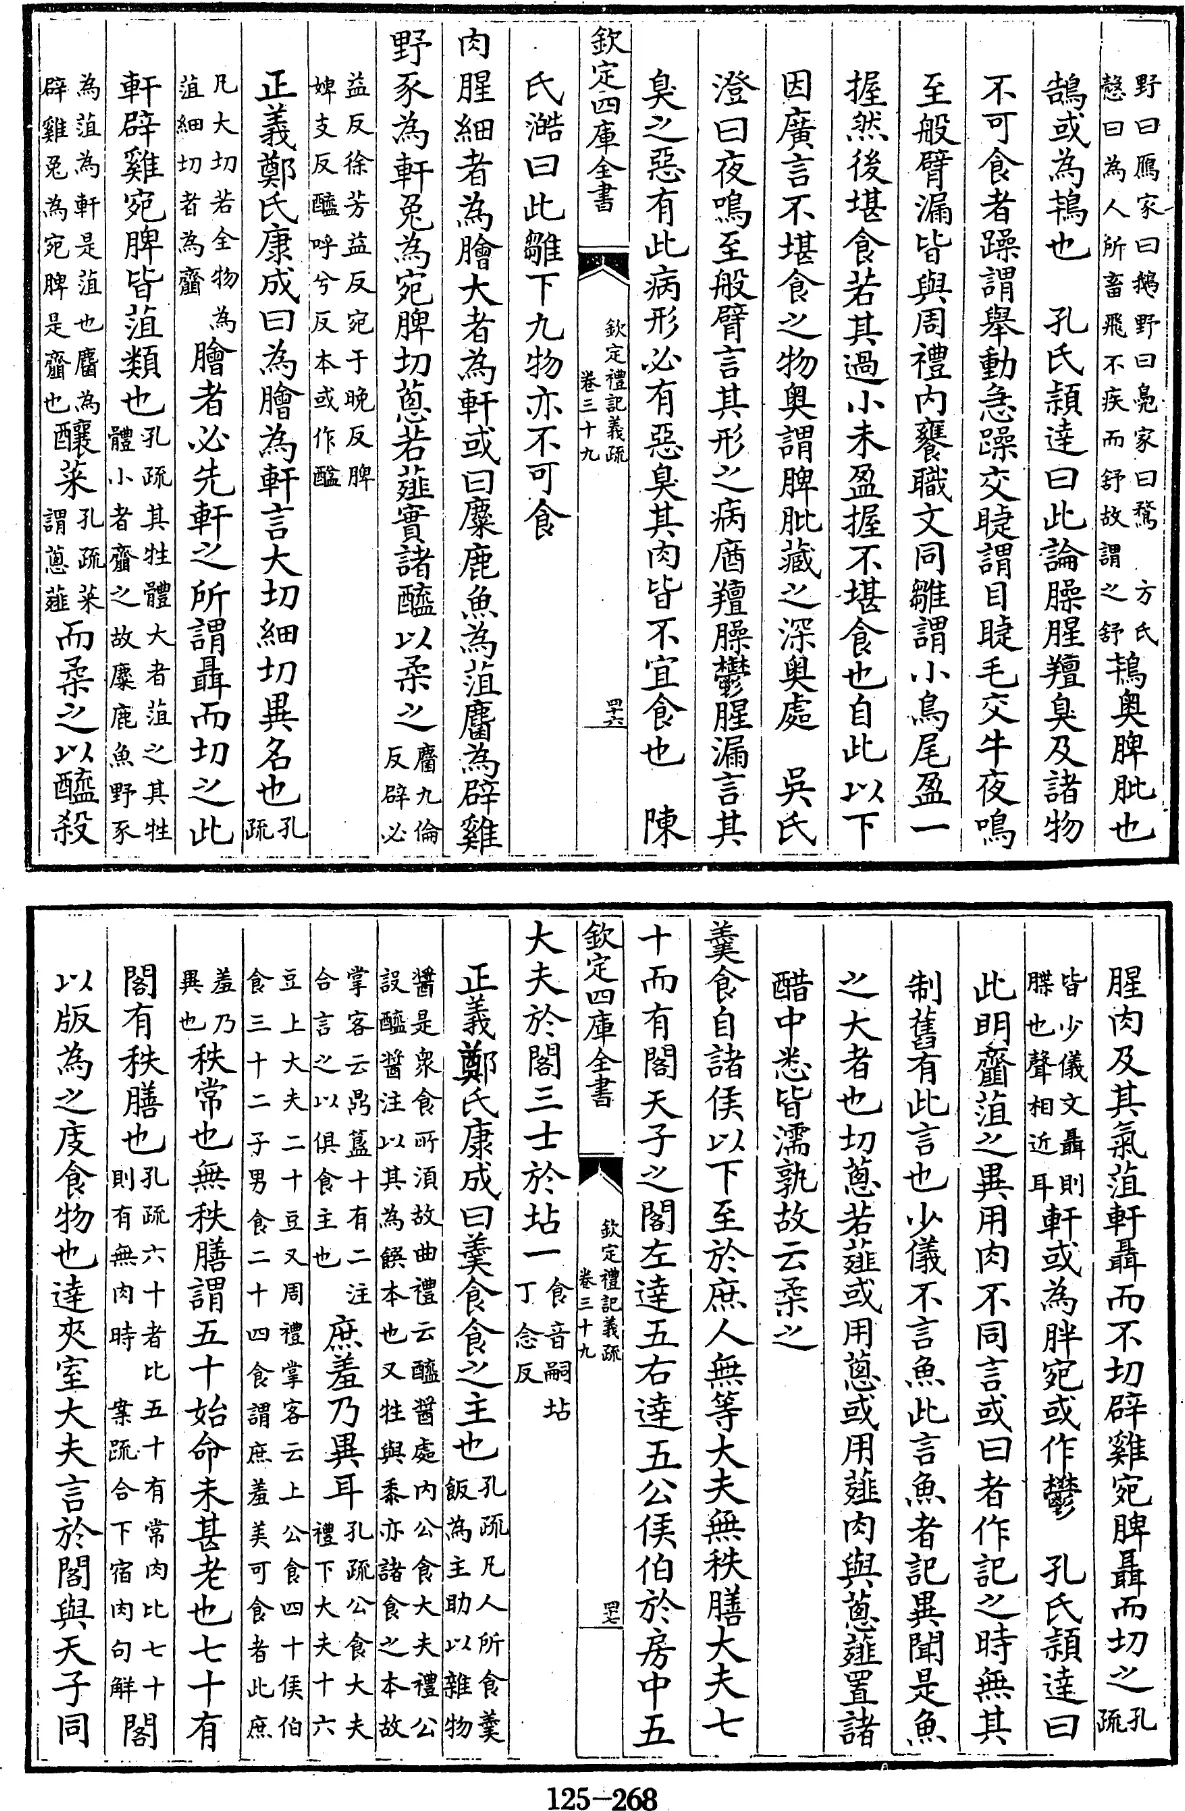 野曰鴈家曰鵝野曰鳧家曰鶩 方氏
慤曰為人所畜飛不疾而舒故謂之舒
鴇奥脾肶也
鵠或為鴇也 孔氏頴達曰此論臊腥羶臭及諸物
不可食者躁謂舉動急躁交睫謂目睫毛交牛夜鳴
至般臂漏皆與周禮内饔職文同雛謂小鳥尾盈一
握然後堪食若其過小未盈握不堪食也自此以下
因廣言不堪食之物奥謂脾肶藏之深奥處 吳氏
澄曰夜鳴至般臂言其形之病庮羶臊鬱腥漏言其
臭之惡有此病形必有惡臭其肉皆不宜食也 陳
欽定四庫全書
欽定禮記義疏
卷三十九
四十六
氏澔曰此雛下九物亦不可食
肉腥細者為膾大者為軒或曰麋鹿魚為菹麕為辟雞
野豕為軒兔為宛脾切蔥若薤實諸醯以柔之
麕九倫
反辟必
益反徐芳益反宛于晚反脾
婢支反醯呼兮反本或作醢
正義鄭氏康成曰為膾為軒言大切細切異名也
孔
疏
凡大切若全物為
菹細切者為齏
膾者必先軒之所謂聶而切之此
軒辟雞宛脾皆菹類也
孔疏其牲體大者菹之其牲
體小者齏之故麋鹿魚野豕
為菹為軒是菹也麕為
辟雞兔為宛脾是齏也
釀菜
孔疏菜
謂蔥薤
而柔之以醯殺
腥肉及其氣菹軒聶而不切辟雞宛脾聶而切之
孔
疏
皆少儀文聶則
牒也聲相近耳
軒或為胖宛或作鬱 孔氏頴達曰
此明齏菹之異用肉不同言或曰者作記之時無其
制舊有此言也少儀不言魚此言魚者記異聞是魚
之大者也切蔥若薤或用蔥或用薤肉與蔥薤置諸
醋中悉皆濡孰故云柔之
羹食自諸侯以下至於庶人無等大夫無秩膳大夫七
十而有閣天子之閣左達五右達五公侯伯於房中五
欽定四庫全書
欽定禮記義疏
卷三十九
四十七
大夫於閣三士於坫一
食音嗣坫
丁念反
正義鄭氏康成曰羹食食之主也
孔疏凡人所食羹
飯為主助以雜物
醬是衆食所須故曲禮云醯醬處内公食大夫禮公
設醯醬注以其為饌本也又牲與黍亦諸食之本故
掌客云鼎簋十有二注
合言之以俱食主也
庶羞乃異耳
孔疏公食大夫
禮下大夫十六
豆上大夫二十豆又周禮掌客云上公食四十侯伯
食三十二子男食二十四食謂庶羞美可食者此庶
羞乃
異也
秩常也無秩膳謂五十始命未甚老也七十有
閣有秩膳也
孔疏六十者比五十有常肉比七十
則有無肉時 案疏合下宿肉句解
閣
以版為之庋食物也達夾室大夫言於閣與天子同
125-268